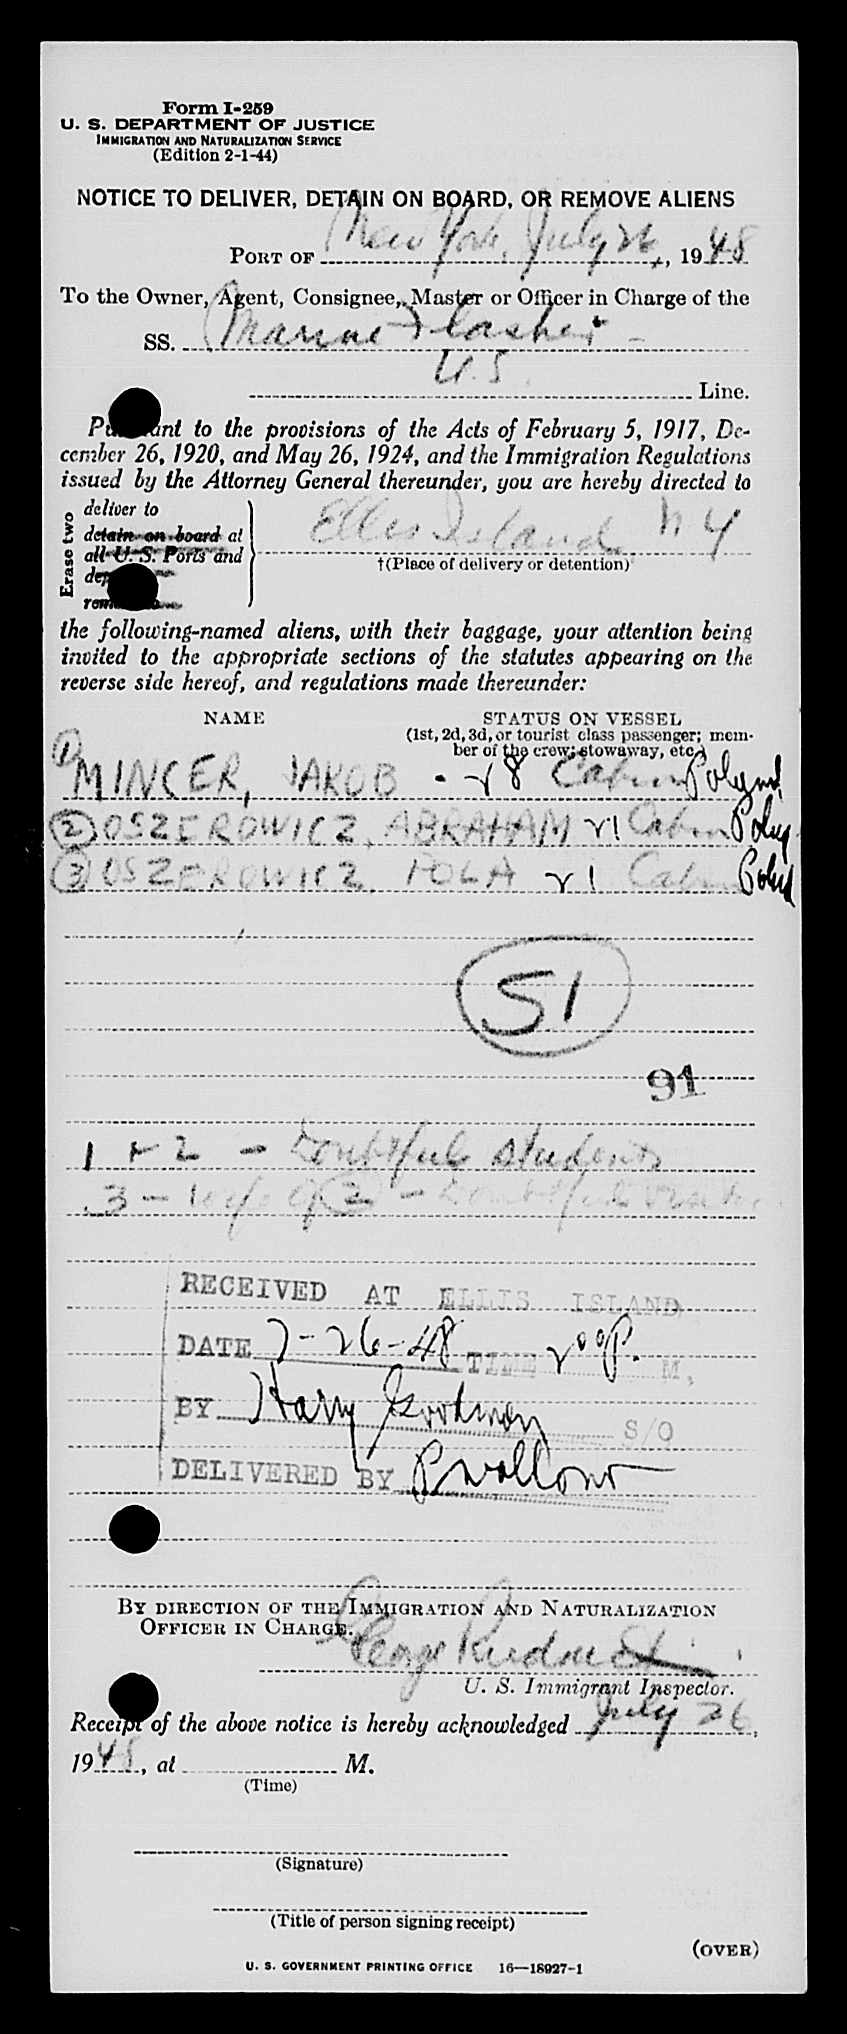 Form I-259
U. S. DEPARTMENT OF JUSTICE
IMMIGRATION AND NATURALIZATION SERVICE
(Edition 2-1-44)
NOTICE TO DELIVER, DETAIN ON BOARD, OR REMOVE ALIENS
PORT OF New York, July 26, 1948
To the Owner, Agent, Consignee, Master or Officer in Charge of the
SS. Marine Flasher
U.S. Line.
Pursuant to the provisions of the Acts of February 5, 1917, De-
cember 26, 1920, and May 26, 1924, and the Immigration Regulations
issued by the Attorney General thereunder, you are hereby directed to
Erase two
deliver to
detain on board at
all U. S. Ports and
Ellis Island N Y
†(Place of delivery or detention)
the following-named aliens, with their baggage, your attention being
invited to the appropriate sections of the statutes appearing on the
reverse side hereof, and regulations made thereunder:
NAME STATUS ON VESSEL
(1st, 2d, 3d, or tourist class passenger; mem-
ber of the crew; stowaway, etc.)
(1) MINCER, JAKOB - v 8 Cabin
(2) OSZEROWICZ, ABRAHAM v 1 Cabin
(3) OSZEROWICZ, POLA v 1 Cabin
51
91
1 + 2 - Doubtful students
3 - wife of (2) - Doubtful
RECEIVED AT ELLIS ISLAND
DATE 7-26-48 TIME 2 00 P. M,
BY Harry Goodman S/O
DELIVERED BY
BY DIRECTION OF THE IMMIGRATION AND NATURALIZATION
OFFICER IN CHARGE.
George
U. S. Immigrant Inspector.
Receipt of the above notice is hereby acknowledged July 26,
1948, at M.
(Time)
(Signature)
(Title of person signing receipt)
(OVER)
U. S. GOVERNMENT PRINTING OFFICE 16—18927-1